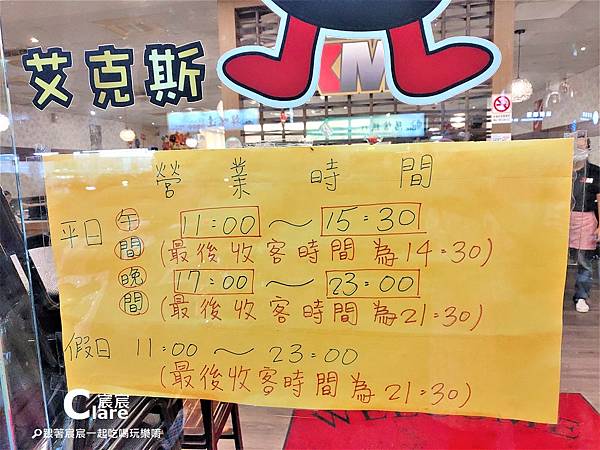 艾克斯
KM
營業時間
平日 午間 11:00～15:30
(最後收客時間為14:30)
晚間 17:00～23:00
(最後收客時間為21:30)
假日 11:00～23:00
(最後收客時間為21:30)
宸宸
Clare
跟著宸宸一起吃喝玩樂唷